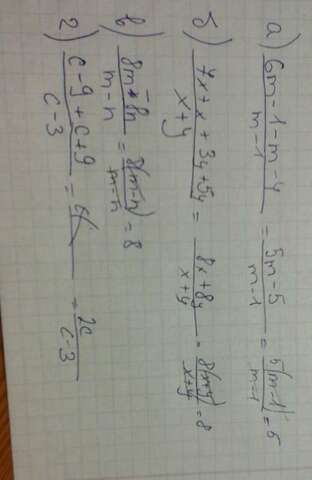 а) 6m-1-m-4/m-1 = 5m-5/m-1 = 5(m-1)/m-1 = 5
б) 7x+x+3y+5y/x+y = 8x+8y/x+y = 8(x+y)/x+y = 8
в) 8m-8n/m-n = 8(m-n)/m-n = 8
г) c-9+c+9/c-3 = = 2c/c-3